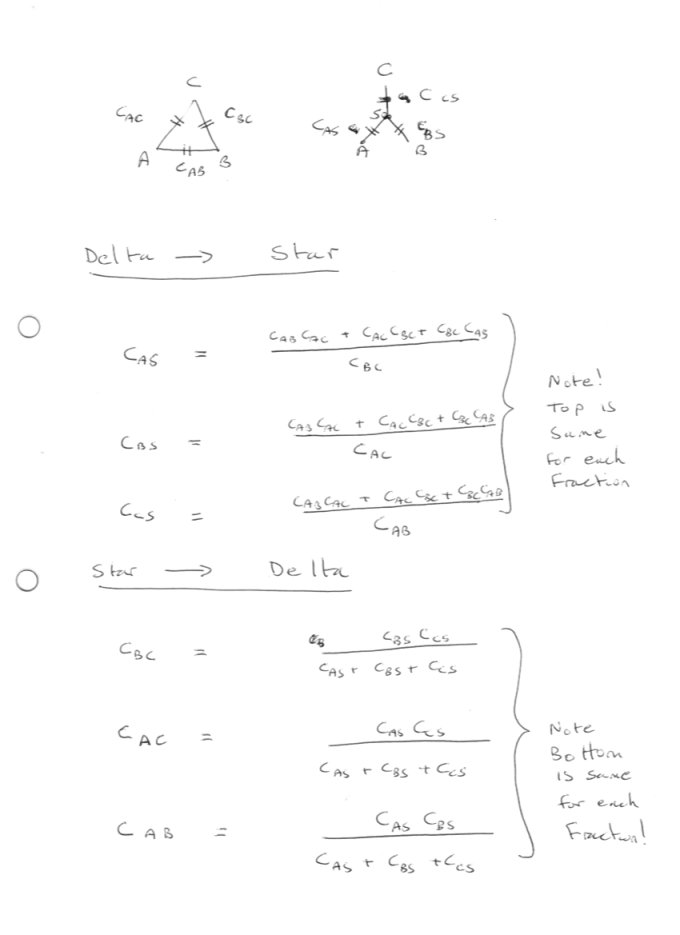 C C
C_AC C_BC C_CS
S
C_AS C_BS
A C_AB B A B
Delta → Star
C_AS = (C_AB C_AC + C_AC C_BC + C_BC C_AB) / C_BC
C_BS = (C_AB C_AC + C_AC C_BC + C_BC C_AB) / C_AC
C_CS = (C_AB C_AC + C_AC C_BC + C_BC C_AB) / C_AB
Note!
Top is
Same
for each
Fraction
Star → Delta
C_BC = C_BS C_CS / (C_AS + C_BS + C_CS)
C_AC = C_AS C_CS / (C_AS + C_BS + C_CS)
C_AB = C_AS C_BS / (C_AS + C_BS + C_CS)
Note
Bottom
is same
for each
Fraction!